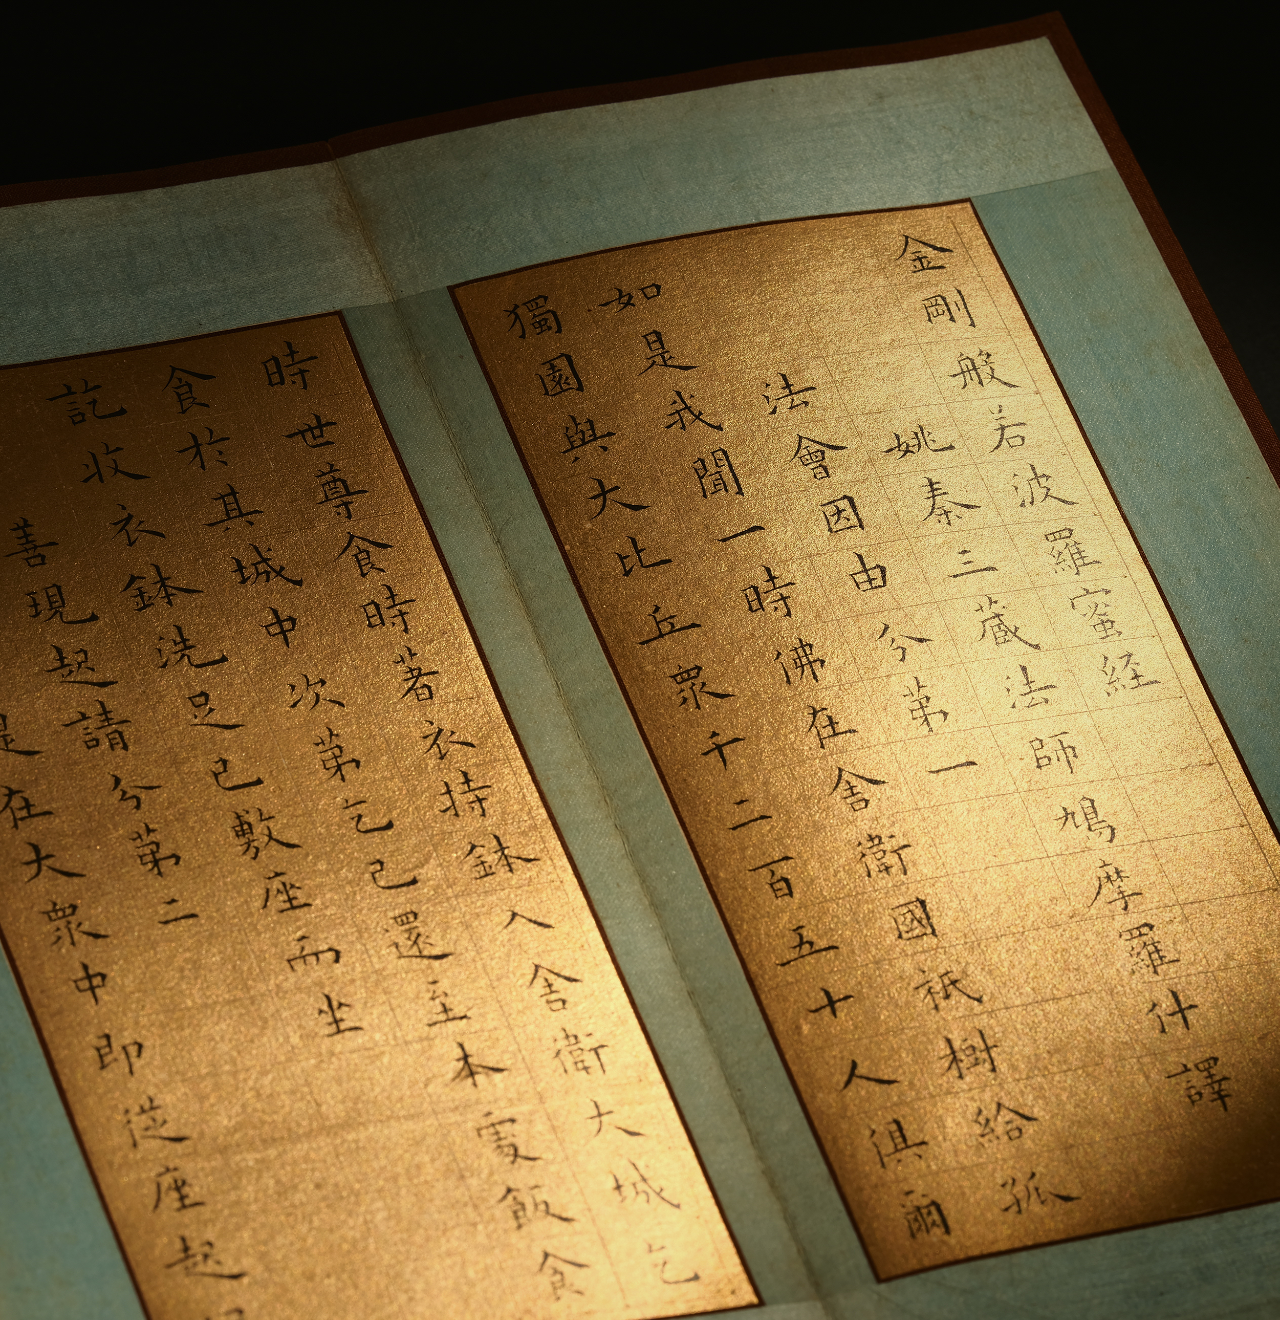 金剛般若波羅蜜経
姚秦三蔵法師鳩摩羅什譯
法會因由分第一
如是我聞一時佛在舎衛國祇樹給孤
獨園與大比丘衆千二百五十人俱爾
時世尊食時著衣持鉢入舎衛大城乞
食於其城中次第乞已還至本處飯食
訖收衣鉢洗足已敷座而坐
善現起請分第二
是在大衆中即從座起